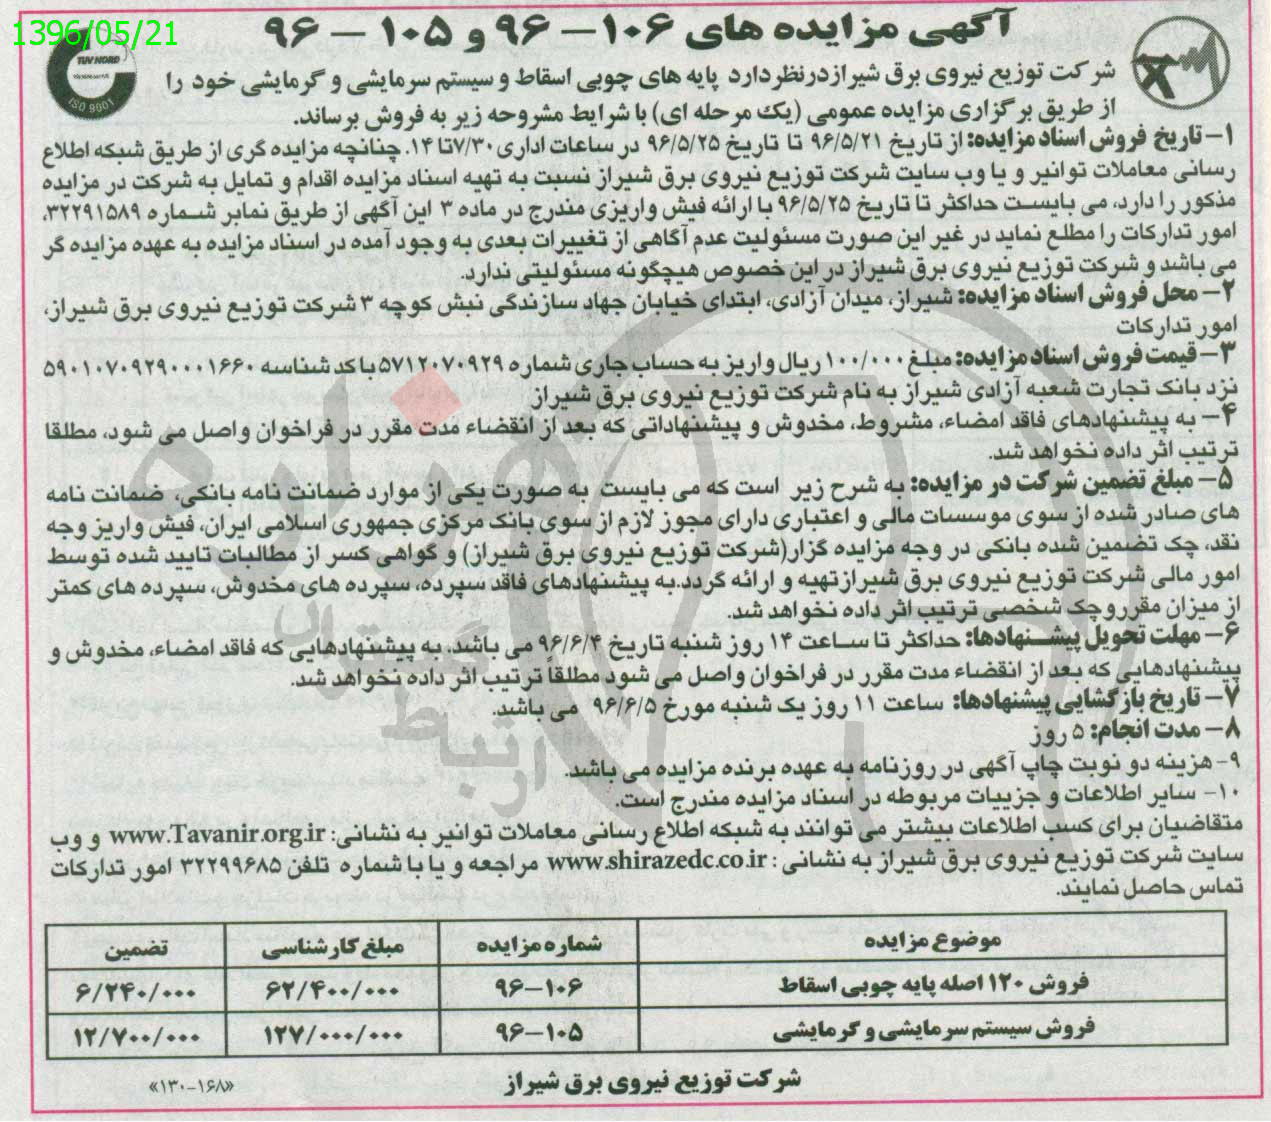 1396/05/21
آگهی مزایده های ۱۰۶- ۹۶ و ۱۰۵ - ۹۶
TUV NORD
ISO 9001
شرکت توزیع نیروی برق شیراز درنظر دارد پایه های چوبی اسقاط و سیستم سرمایشی و گرمایشی خود را
از طریق برگزاری مزایده عمومی (یک مرحله ای) با شرایط مشروحه زیر به فروش برساند.
۱- تاریخ فروش اسناد مزایده: از تاریخ ۹۶/۵/۲۱ تا تاریخ ۹۶/۵/۲۵ در ساعات اداری ۷/۳۰ تا ۱۴. چنانچه مزایده گری از طریق شبکه اطلاع
رسانی معاملات توانیر و یا وب سایت شرکت توزیع نیروی برق شیراز نسبت به تهیه اسناد مزایده اقدام و تمایل به شرکت در مزایده
مذکور را دارد، می بایست حداکثر تا تاریخ ۹۶/۵/۲۵ با ارائه فیش واریزی مندرج در ماده ۳ این آگهی از طریق نمابر شماره ۳۲۲۹۱۵۸۹،
امور تدارکات را مطلع نماید در غیر این صورت مسئولیت عدم آگاهی از تغییرات بعدی به وجود آمده در اسناد مزایده به عهده مزایده گر
می باشد و شرکت توزیع نیروی برق شیراز در این خصوص هیچگونه مسئولیتی ندارد.
۲- محل فروش اسناد مزایده: شیراز، میدان آزادی، ابتدای خیابان جهاد سازندگی نبش کوچه ۳ شرکت توزیع نیروی برق شیراز،
امور تدارکات
۳- قیمت فروش اسناد مزایده: مبلغ ۱۰۰/۰۰۰ ریال واریز به حساب جاری شماره ۵۷۱۲۰۷۰۹۲۹ با کد شناسه ۵۹۰۱۰۷۰۹۲۹۰۰۰۱۶۶۰
نزد بانک تجارت شعبه آزادی شیراز به نام شرکت توزیع نیروی برق شیراز
۴- به پیشنهادهای فاقد امضاء، مشروط، مخدوش و پیشنهاداتی که بعد از انقضاء مدت مقرر در فراخوان واصل می شود، مطلقا
ترتیب اثر داده نخواهد شد.
۵- مبلغ تضمین شرکت در مزایده: به شرح زیر است که می بایست به صورت یکی از موارد ضمانت نامه بانکی، ضمانت نامه
های صادر شده از سوی موسسات مالی و اعتباری دارای مجوز لازم از سوی بانک مرکزی جمهوری اسلامی ایران، فیش واریز وجه
نقد، چک تضمین شده بانکی در وجه مزایده گزار(شرکت توزیع نیروی برق شیراز) و گواهی کسر از مطالبات تایید شده توسط
امور مالی شرکت توزیع نیروی برق شیراز تهیه و ارائه گردد.به پیشنهادهای فاقد سپرده، سپرده های مخدوش، سپرده های کمتر
از میزان مقرر و چک شخصی ترتیب اثر داده نخواهد شد.
۶- مهلت تحویل پیشنهادها: حداکثر تا ساعت ۱۴ روز شنبه تاریخ ۹۶/۶/۴ می باشد. به پیشنهادهایی که فاقد امضاء، مخدوش و
پیشنهادهایی که بعد از انقضاء مدت مقرر در فراخوان واصل می شود مطلقاً ترتیب اثر داده نخواهد شد.
۷- تاریخ بازگشایی پیشنهادها: ساعت ۱۱ روز یک شنبه مورخ ۹۶/۶/۵ می باشد.
۸- مدت انجام: ۵ روز
۹- هزینه دو نوبت چاپ آگهی در روزنامه به عهده برنده مزایده می باشد.
۱۰- سایر اطلاعات و جزییات مربوطه در اسناد مزایده مندرج است.
متقاضیان برای کسب اطلاعات بیشتر می توانند به شبکه اطلاع رسانی معاملات توانیر به نشانی: www.Tavanir.org.ir و وب
سایت شرکت توزیع نیروی برق شیراز به نشانی : www.shirazedc.co.ir مراجعه و یا با شماره تلفن ۳۲۲۹۹۶۸۵ امور تدارکات
تماس حاصل نمایند.
موضوع مزایده شماره مزایده مبلغ کارشناسی تضمین
فروش ۱۲۰ اصله پایه چوبی اسقاط ۹۶-۱۰۶ ۶۲/۴۰۰/۰۰۰ ۶/۲۴۰/۰۰۰
فروش سیستم سرمایشی و گرمایشی ۹۶-۱۰۵ ۱۲۷/۰۰۰/۰۰۰ ۱۲/۷۰۰/۰۰۰
شرکت توزیع نیروی برق شیراز
«۱۳۰-۱۶۸»